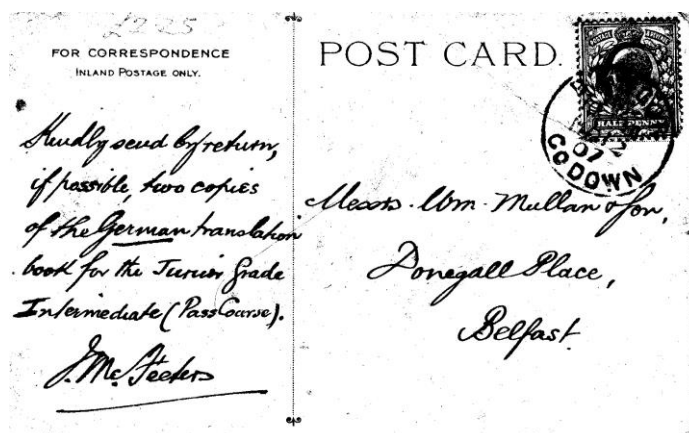 £2.25
FOR CORRESPONDENCE
INLAND POSTAGE ONLY.
Kindly send by return,
if possible, two copies
of the German translation
book for the Junior Grade
Intermediate (Pass Course).
J. McFeeters
POST CARD.
POSTAGE & REVENUE
HALF PENNY
07
CO DOWN
Messrs. Wm. Mullan & Son,
Donegall Place,
Belfast.